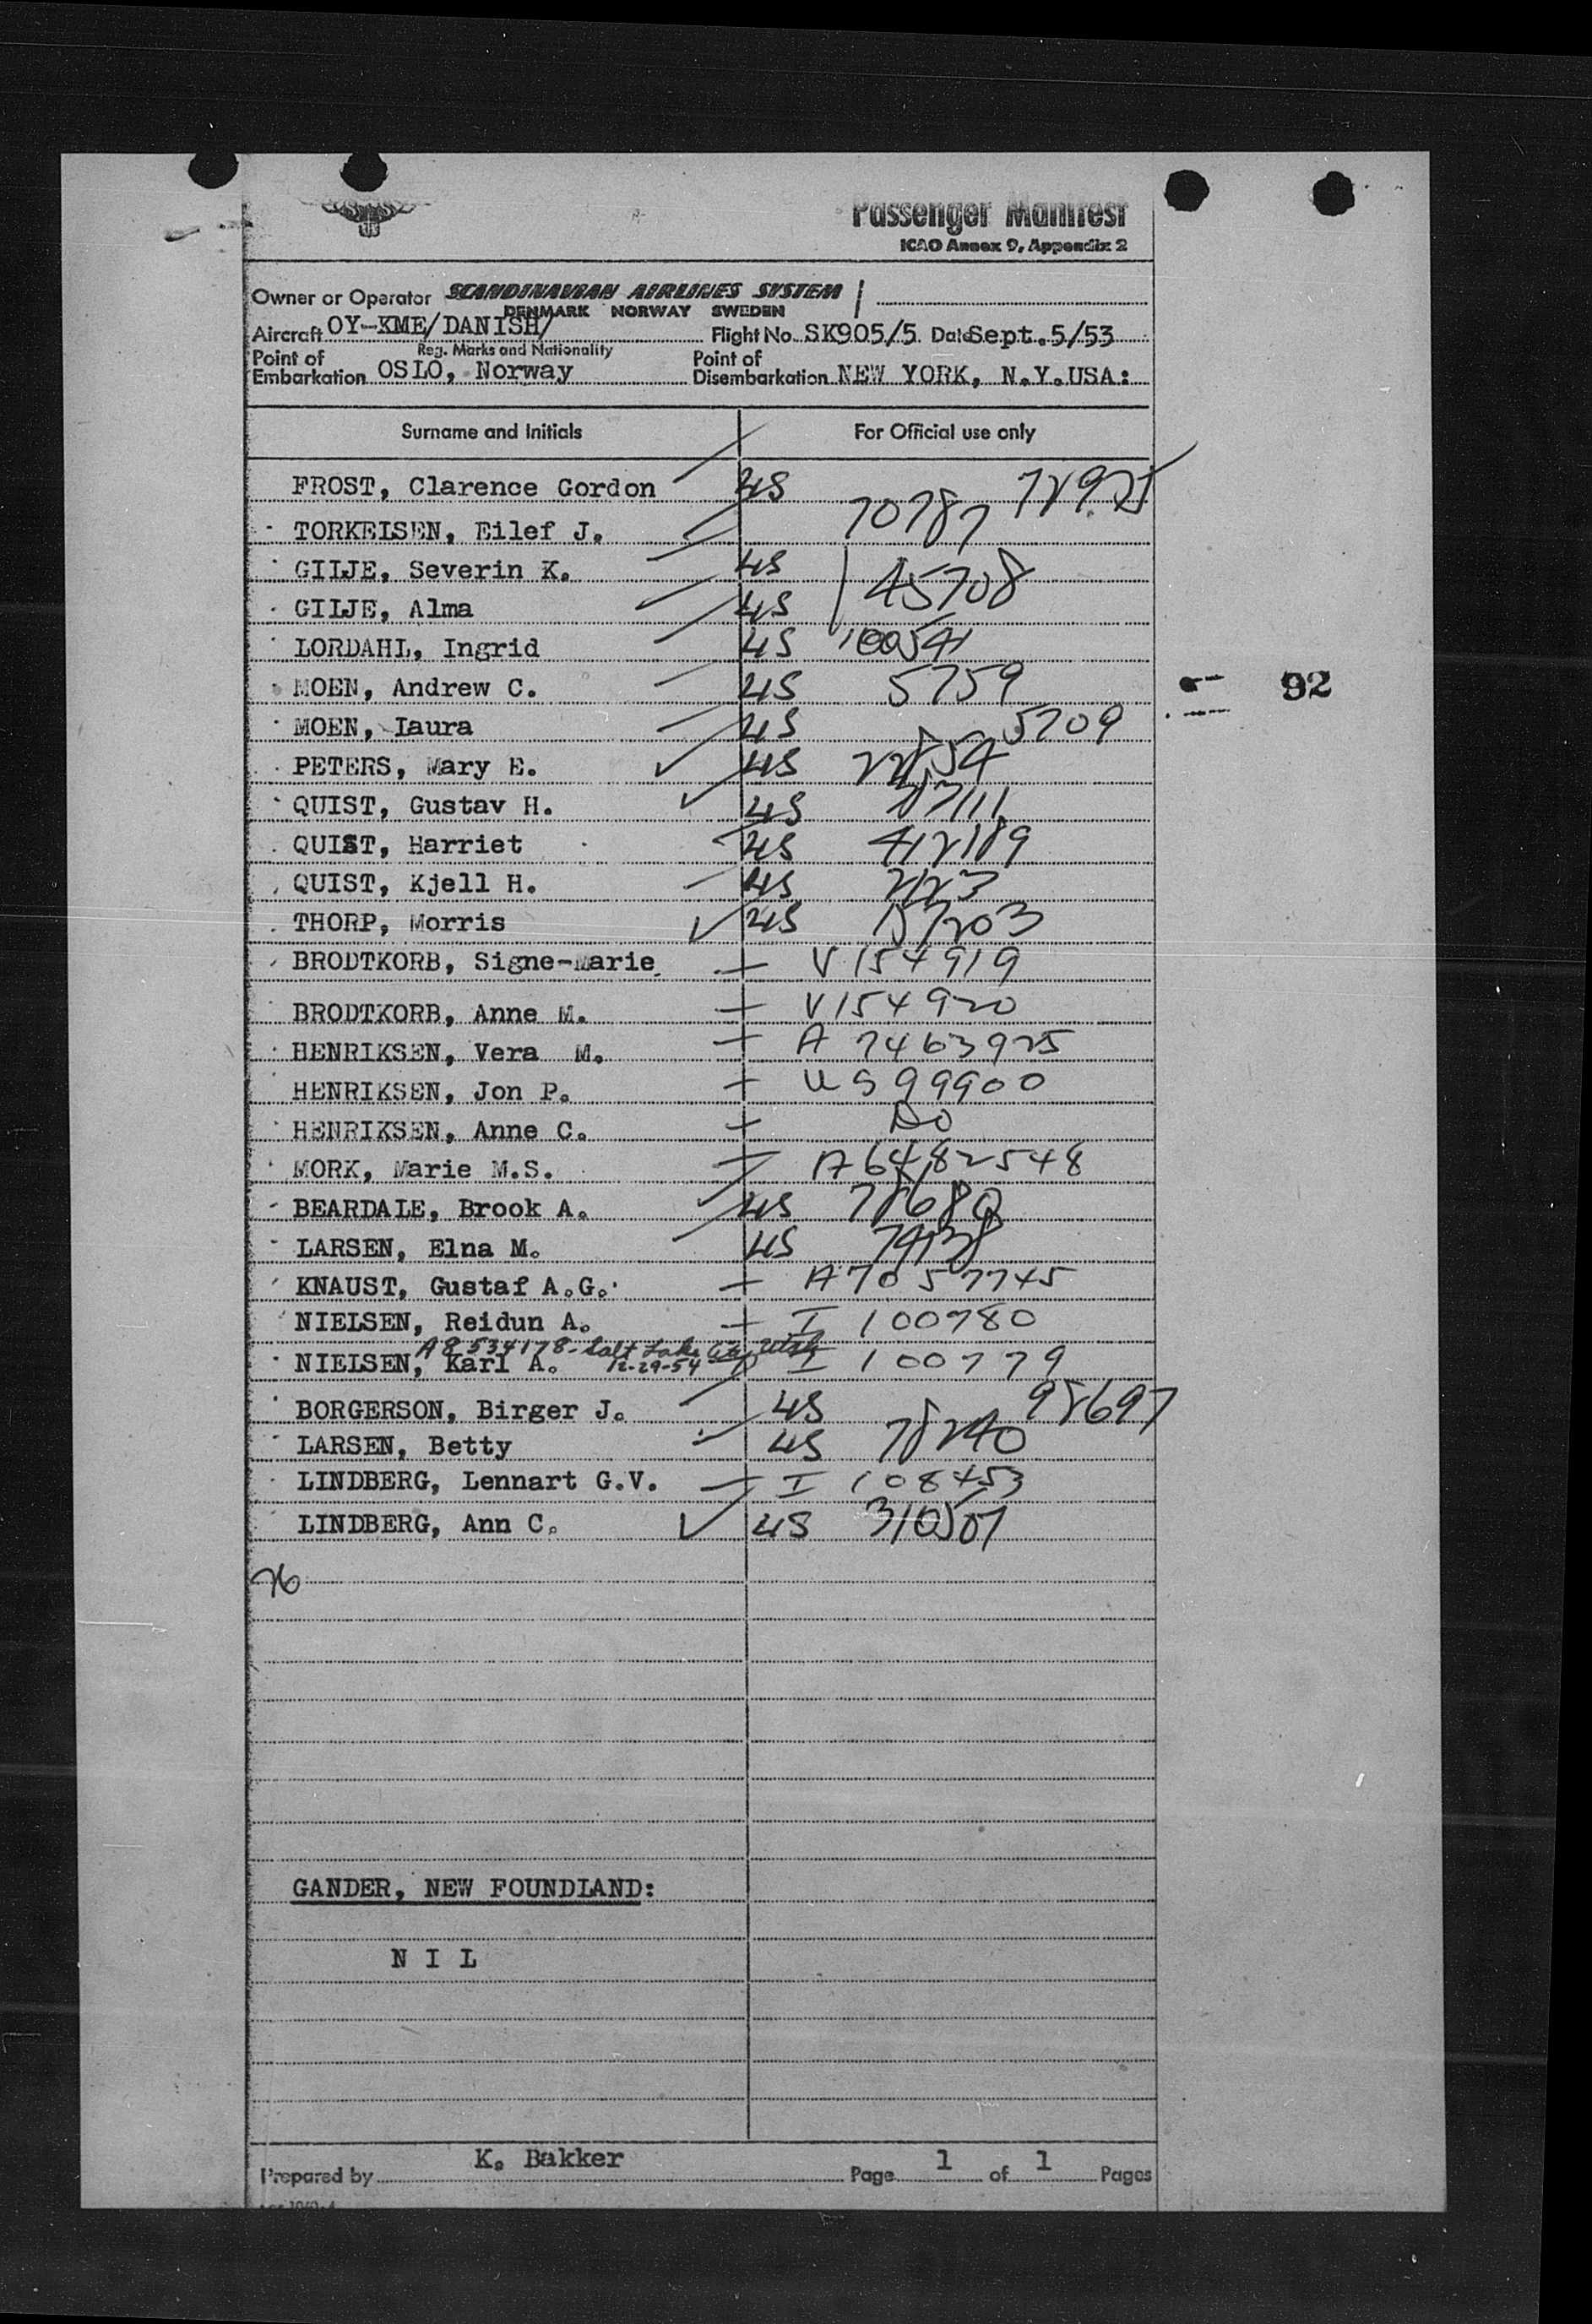 Passenger Manifest
ICAO Annex 9, Appendix 2
Owner or Operator SCANDINAVIAN AIRLINES SYSTEM
DENMARK NORWAY SWEDEN
Aircraft OY-KME/DANISH/ Flight No. SK905/5 Date Sept. 5/53
Reg. Marks and Nationality
Point of Embarkation OSLO, Norway Point of Disembarkation NEW YORK, N.Y.USA:
Surname and Initials For Official use only
FROST, Clarence Gordon US
TORKELSEN, Eilef J. 70787
GILJE, Severin K. US 45708
GILJE, Alma US
LORDAHL, Ingrid US
MOEN, Andrew C. US 5759
92
MOEN, Laura US 5709
PETERS, Mary E. US 22854
QUIST, Gustav H. US
QUIST, Harriet US 412189
QUIST, Kjell H. US 2123
THORP, Morris US 157203
BRODTKORB, Signe-Marie V 154919
BRODTKORB, Anne M. V154920
HENRIKSEN, Vera M. A 7463925
HENRIKSEN, Jon P. US 99900
HENRIKSEN, Anne C. Do
MORK, Marie M.S. A6482548
BEARDALE, Brook A. US 78680
LARSEN, Elna M. US
KNAUST, Gustaf A.G. A7057745
NIELSEN, Reidun A. I 100780
A8534178-Salt Lake City Utah
NIELSEN, Karl A. 12-29-54 I 100779
BORGERSON, Birger J. US 98697
LARSEN, Betty US 78240
LINDBERG, Lennart G.V. I 108453
LINDBERG, Ann C. US 310507
GANDER, NEW FOUNDLAND:
N I L
K. Bakker
Prepared by Page 1 of 1 Pages